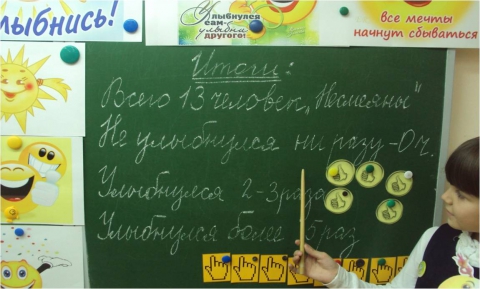 лыбнись!
Улыбнулся
сам-
улыбни
другого!
все мечты
начнут сбываться
Итоги:
Всего 13 человек „Несмеяны"
Не улыбнулся ни разу - 0 ч.
Улыбнулся 2-3 раза
Улыбнулся более 5 раз